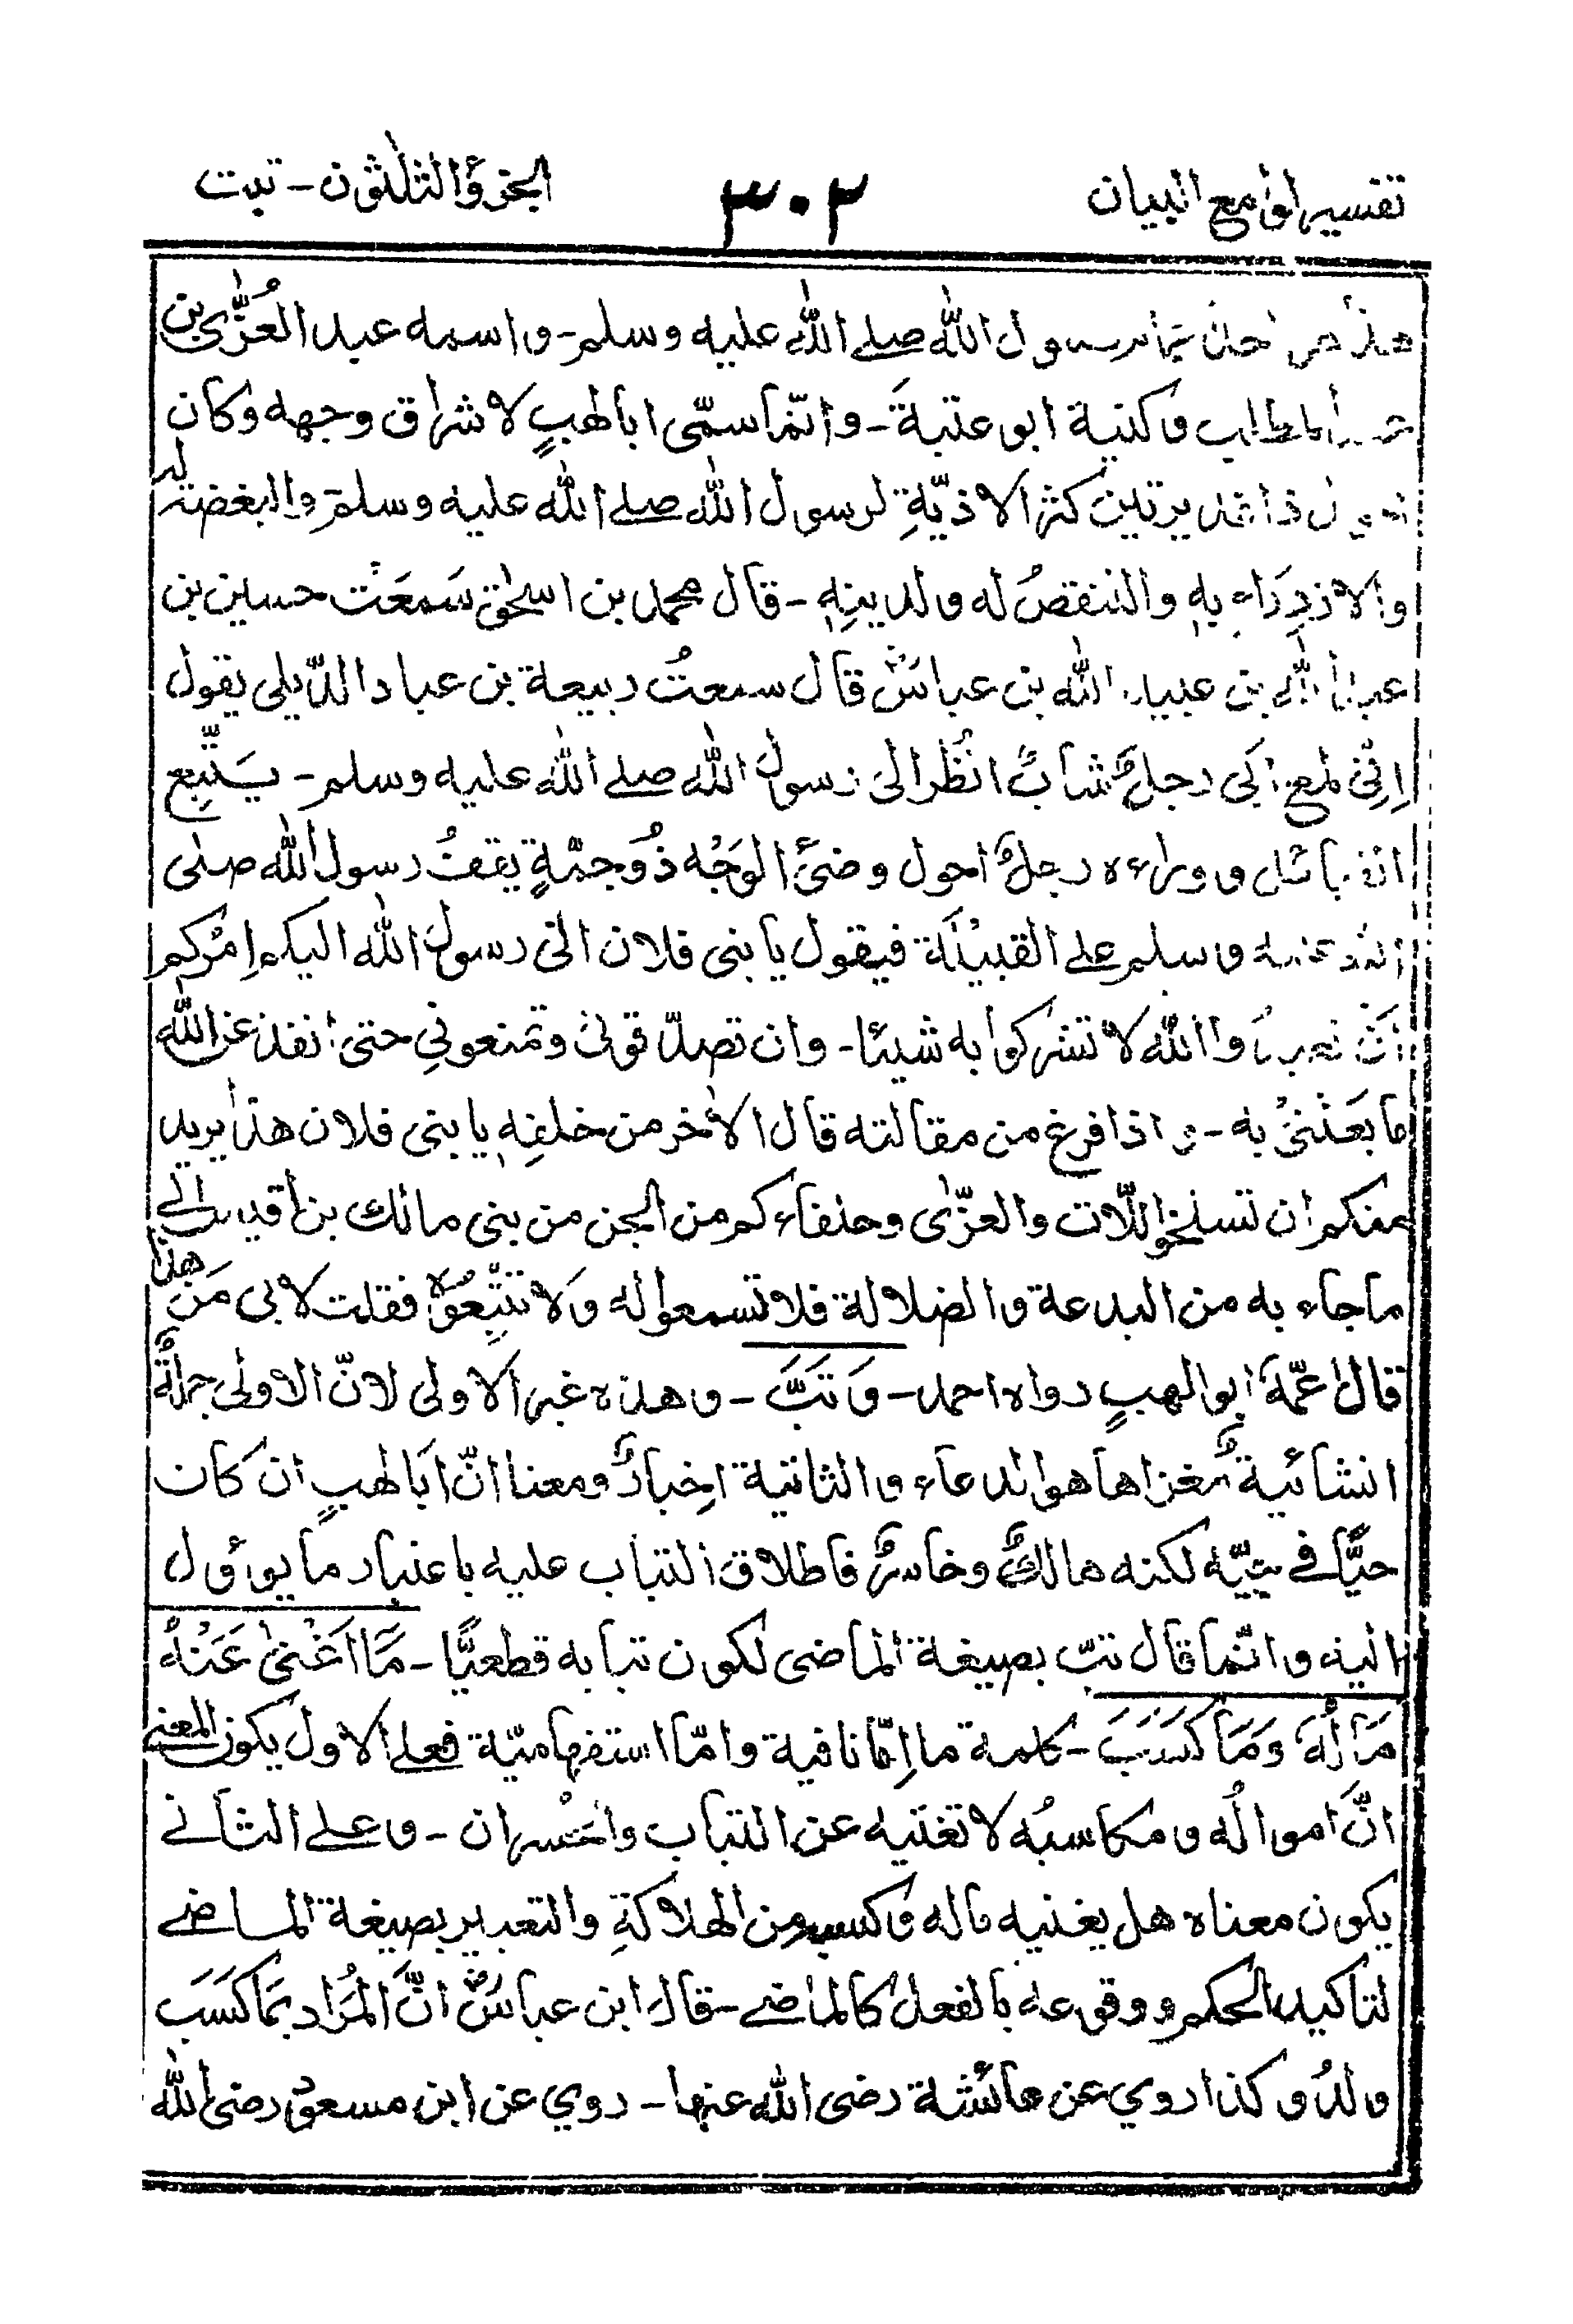 تفسير لوامع البيان ٣٠٢ الجزؤ الثلٰثون - تبت
رسول اللّٰه صلے اللّٰه عليه وسلم - واسمه عبد العُزّٰى بن
المطلب وكنية ابو عتبةَ - وانّما سمّى ابا لهبٍ لاشراق وجهه وكان
كثر الاذيّةِ لرسول اللّٰه صلے اللّٰه عليه وسلم والبغضة له
والازدِرَاء بهٖ والتنقصُ له ولدينِهٖ - قال محمد بن اسحٰق سَمعَت حسين بن
عبد اللّٰه بن عبيد اللّٰه بن عباسؓ قال سمعتُ ربيعة بن عباد الدّيلى يقول
اِنّى لمع ابَى رجلٌ شابٌ انظُر الىٰ رسول اللّٰه صلے اللّٰه عليه وسلم - يَتّبِع
القبائل ووراءه رجلٌ احول وضئ الوَجْه ذُو جمّةٍ يقفُ رسول اللّٰه صلى
اللّٰه عليه وسلم على القبيْلَة فيقول يا بنى فلان انى رسول اللّٰه اليكم اٰمركم
انْ تعبدُوا اللّٰه لا تشركوا به شيئا - وان تصدّقونى وتمنعوني حتى انفذ عن اللّٰه
ما بَعَثنىْ به - واذا فرغ من مقالته قال الاٰخر من خلفِهٖ يا بنى فلان هذا يريد
منكم ان تسلخوا اللّات والعزّٰى وحلفاءكم من الجن من بنى مالك بن اقيس الى
ما جاء به من البدعة والضلالة فلا تسمعوا له وَلا تتّبِعُوْهُ فقلت لابى مَن هذا
قال عمّهٗ ابو لهبٍ رواه احمد - وَتَبَّ - وهذه غير الاولى لانّ الاولى جملةٌ
انشائيةٌ مغزاها هو الدعاء والثانية اخبارٌ ومعنا انّ ابَا لهبٍ ان كان
حيًّا فے لكنه هالكٌ وخاسرٌ فاطلاق التباب عليه باعتبار ما يوؤل
اليه وانّما قال تبّ بصيغة الماضى لكون تبابه قطعيًّا - مَآ اَغْنىٰ عَنْهُ
مَالُهٗ وَمَا كَسَبَ - كلمة ما اِمّا نافية وامّا استفهاميّة فعلے الاول يكون المعنى
انّ اموالُه ومكاسبُه لا تغنيه عن التباب والخسران - وعلے الثانے
يكون معناه هل يغنيه ماله وكسبه من الهلاكةِ والتعبير بصيغة الماضے
لتاكيد الحكم ووقوعه بالفعل كالماضے - قال ابن عباسؓ انّ المُرَاد بمَا كَسَب
ولدُ وكذا روي عن عائشة رضى اللّٰه عنها - روي عن ابن مسعود رضى اللّٰه